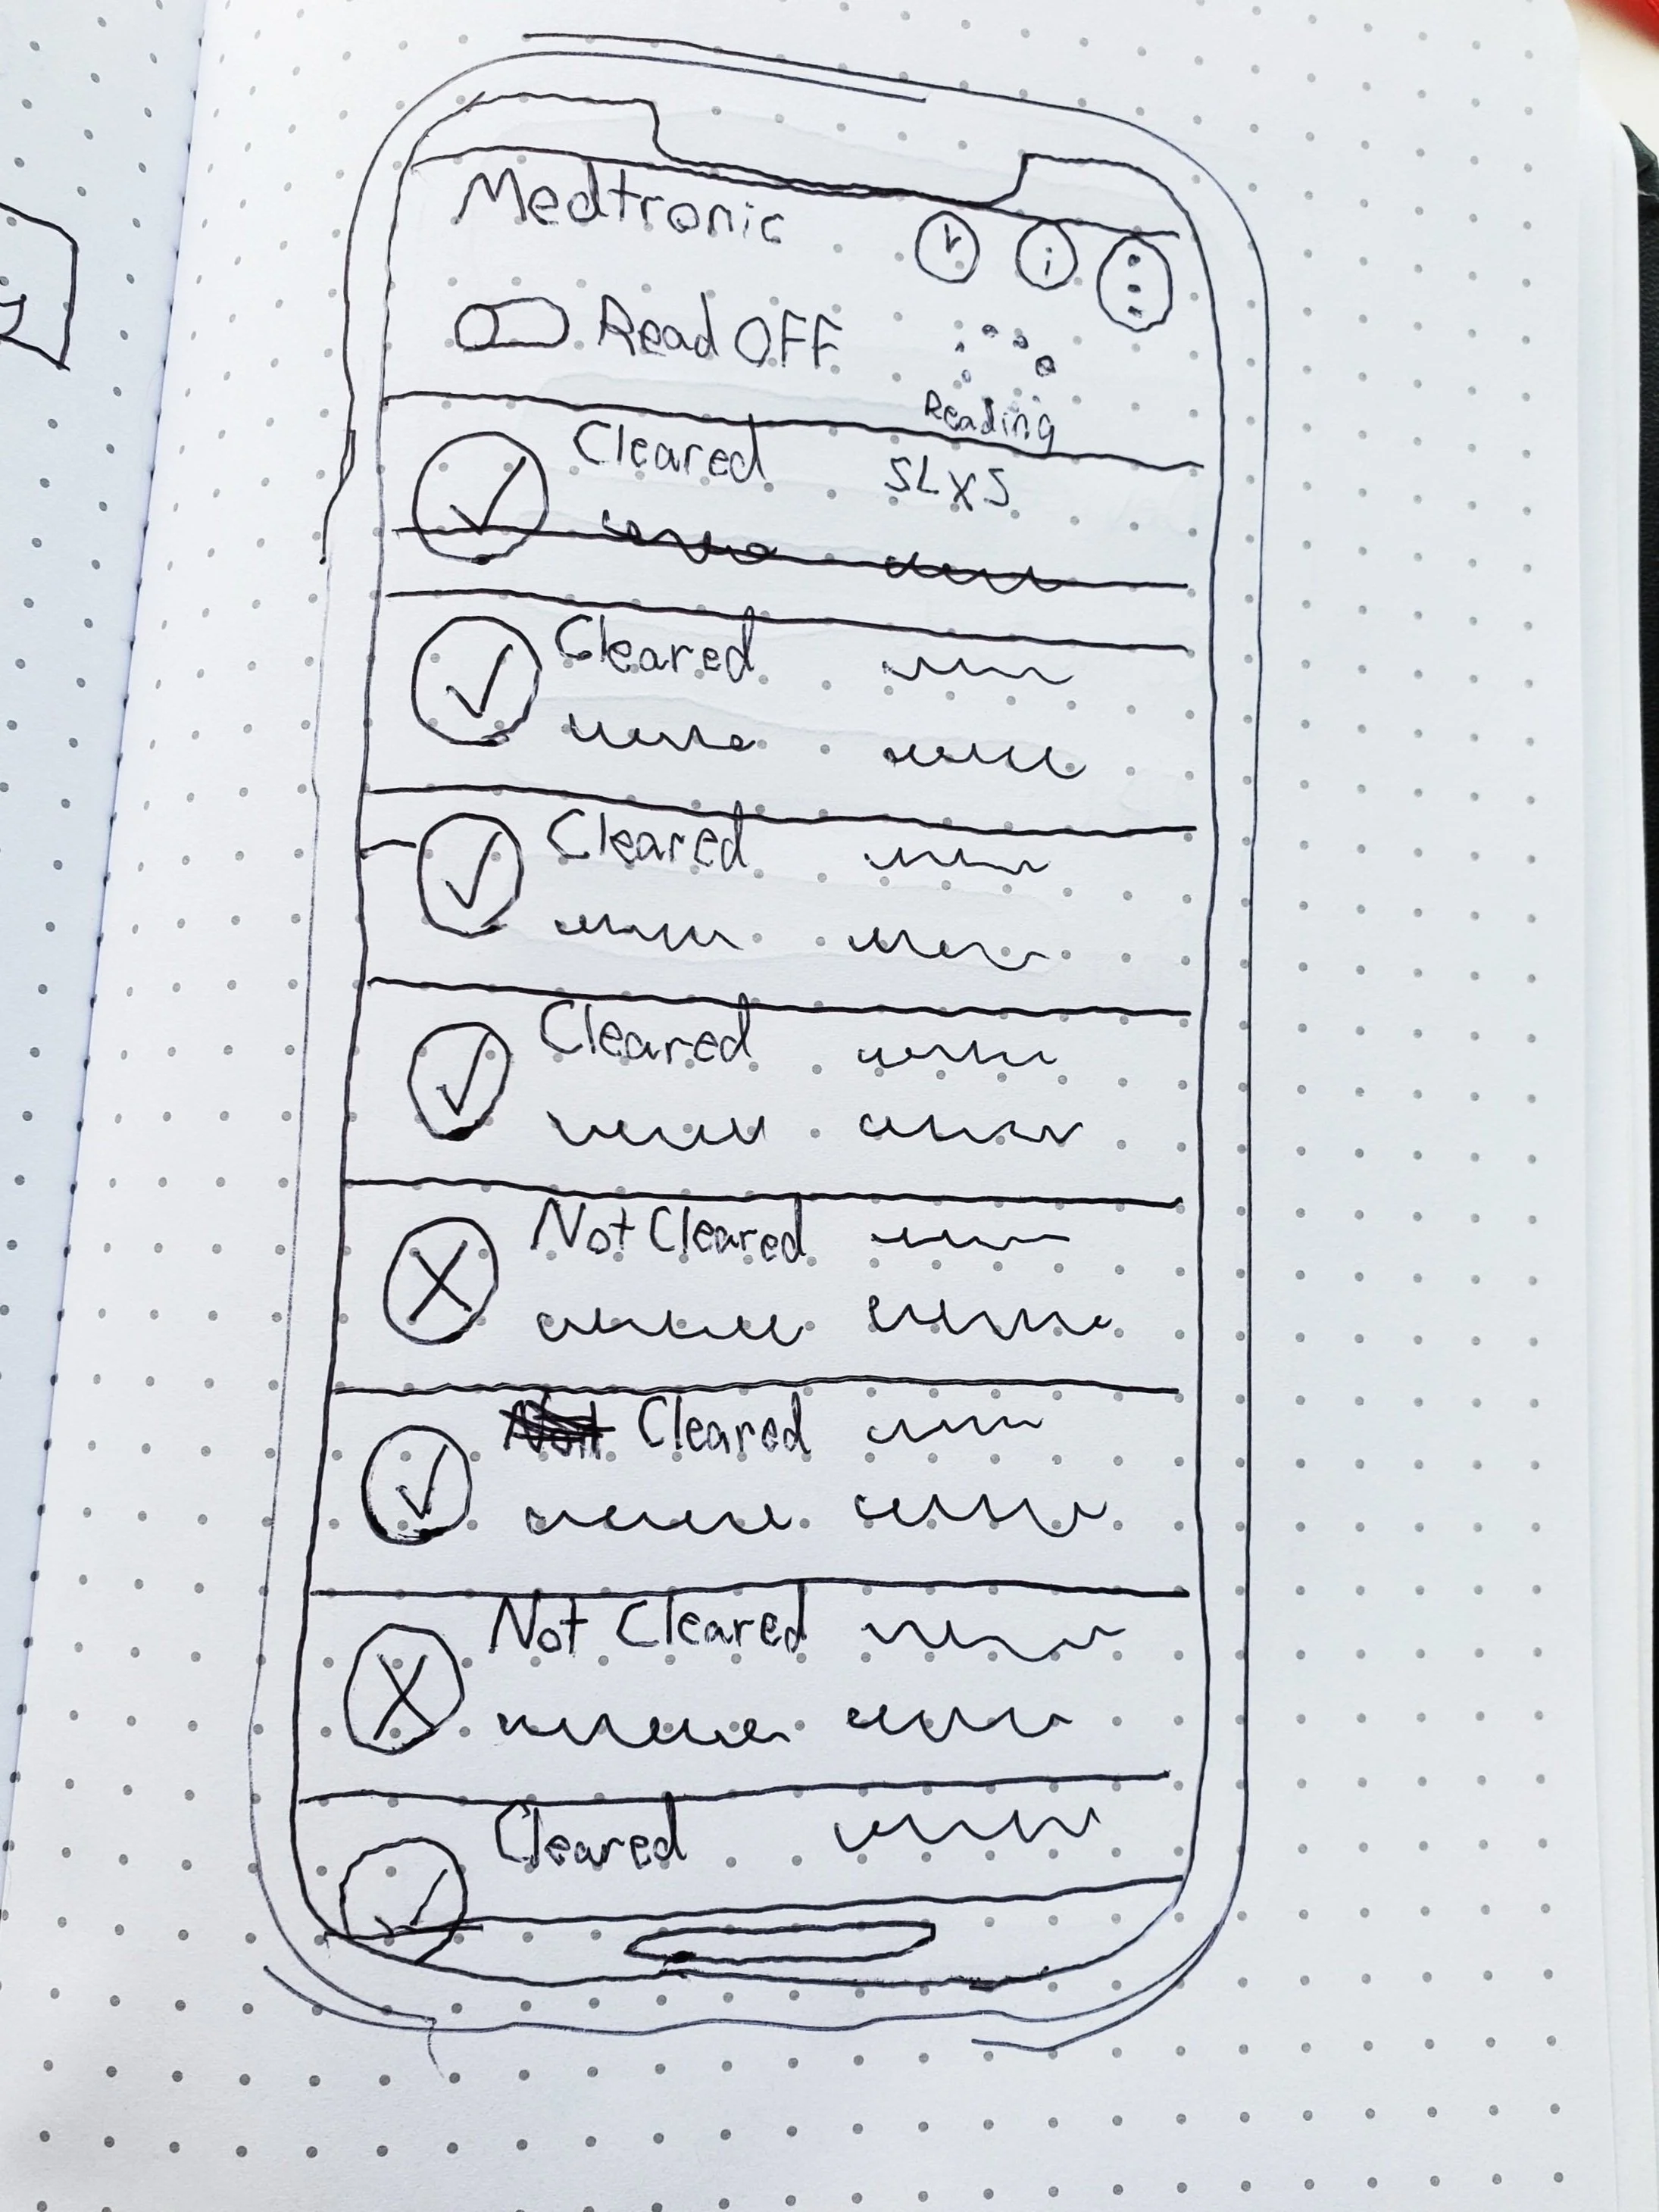 Medtronic
i
Read OFF
Reading
Cleared SLXS
Cleared
Cleared
Cleared
Not Cleared
Cleared
Not Cleared
Cleared